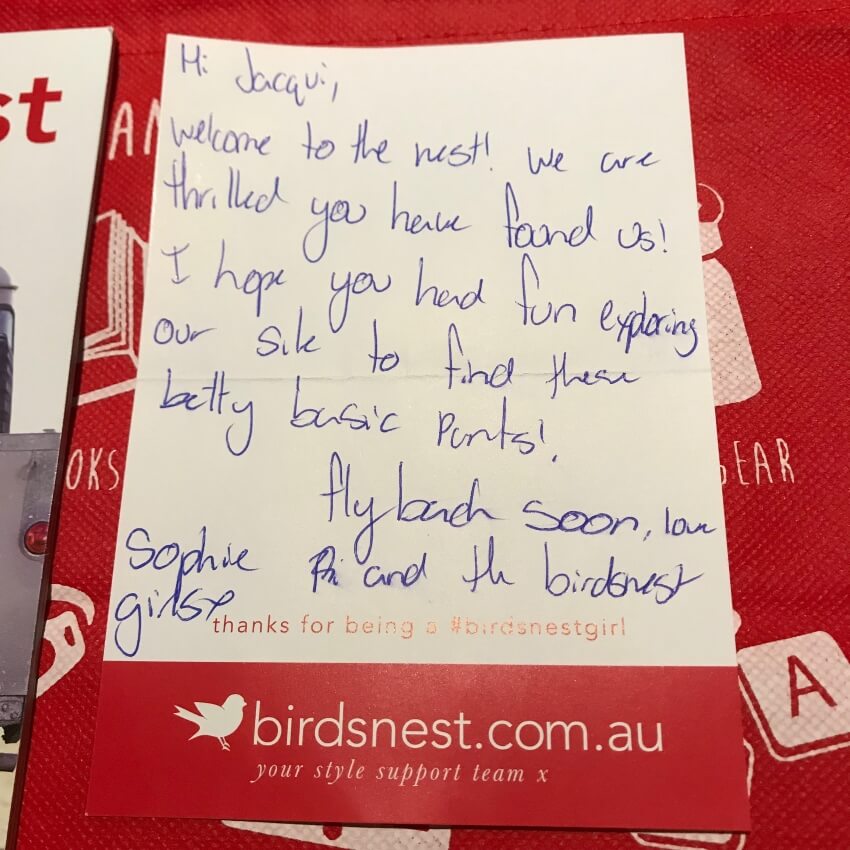 st
AN
OKS
EAR
A
Hi Jacqui,
Welcome to the nest! We are
thrilled you have found us!
I hope you had fun exploring
our site to find these
betty basic pants!
fly back soon, love
Sophie and the birdsnest
girls x
thanks for being a #birdsnestgirl
birdsnest.com.au
your style support team x